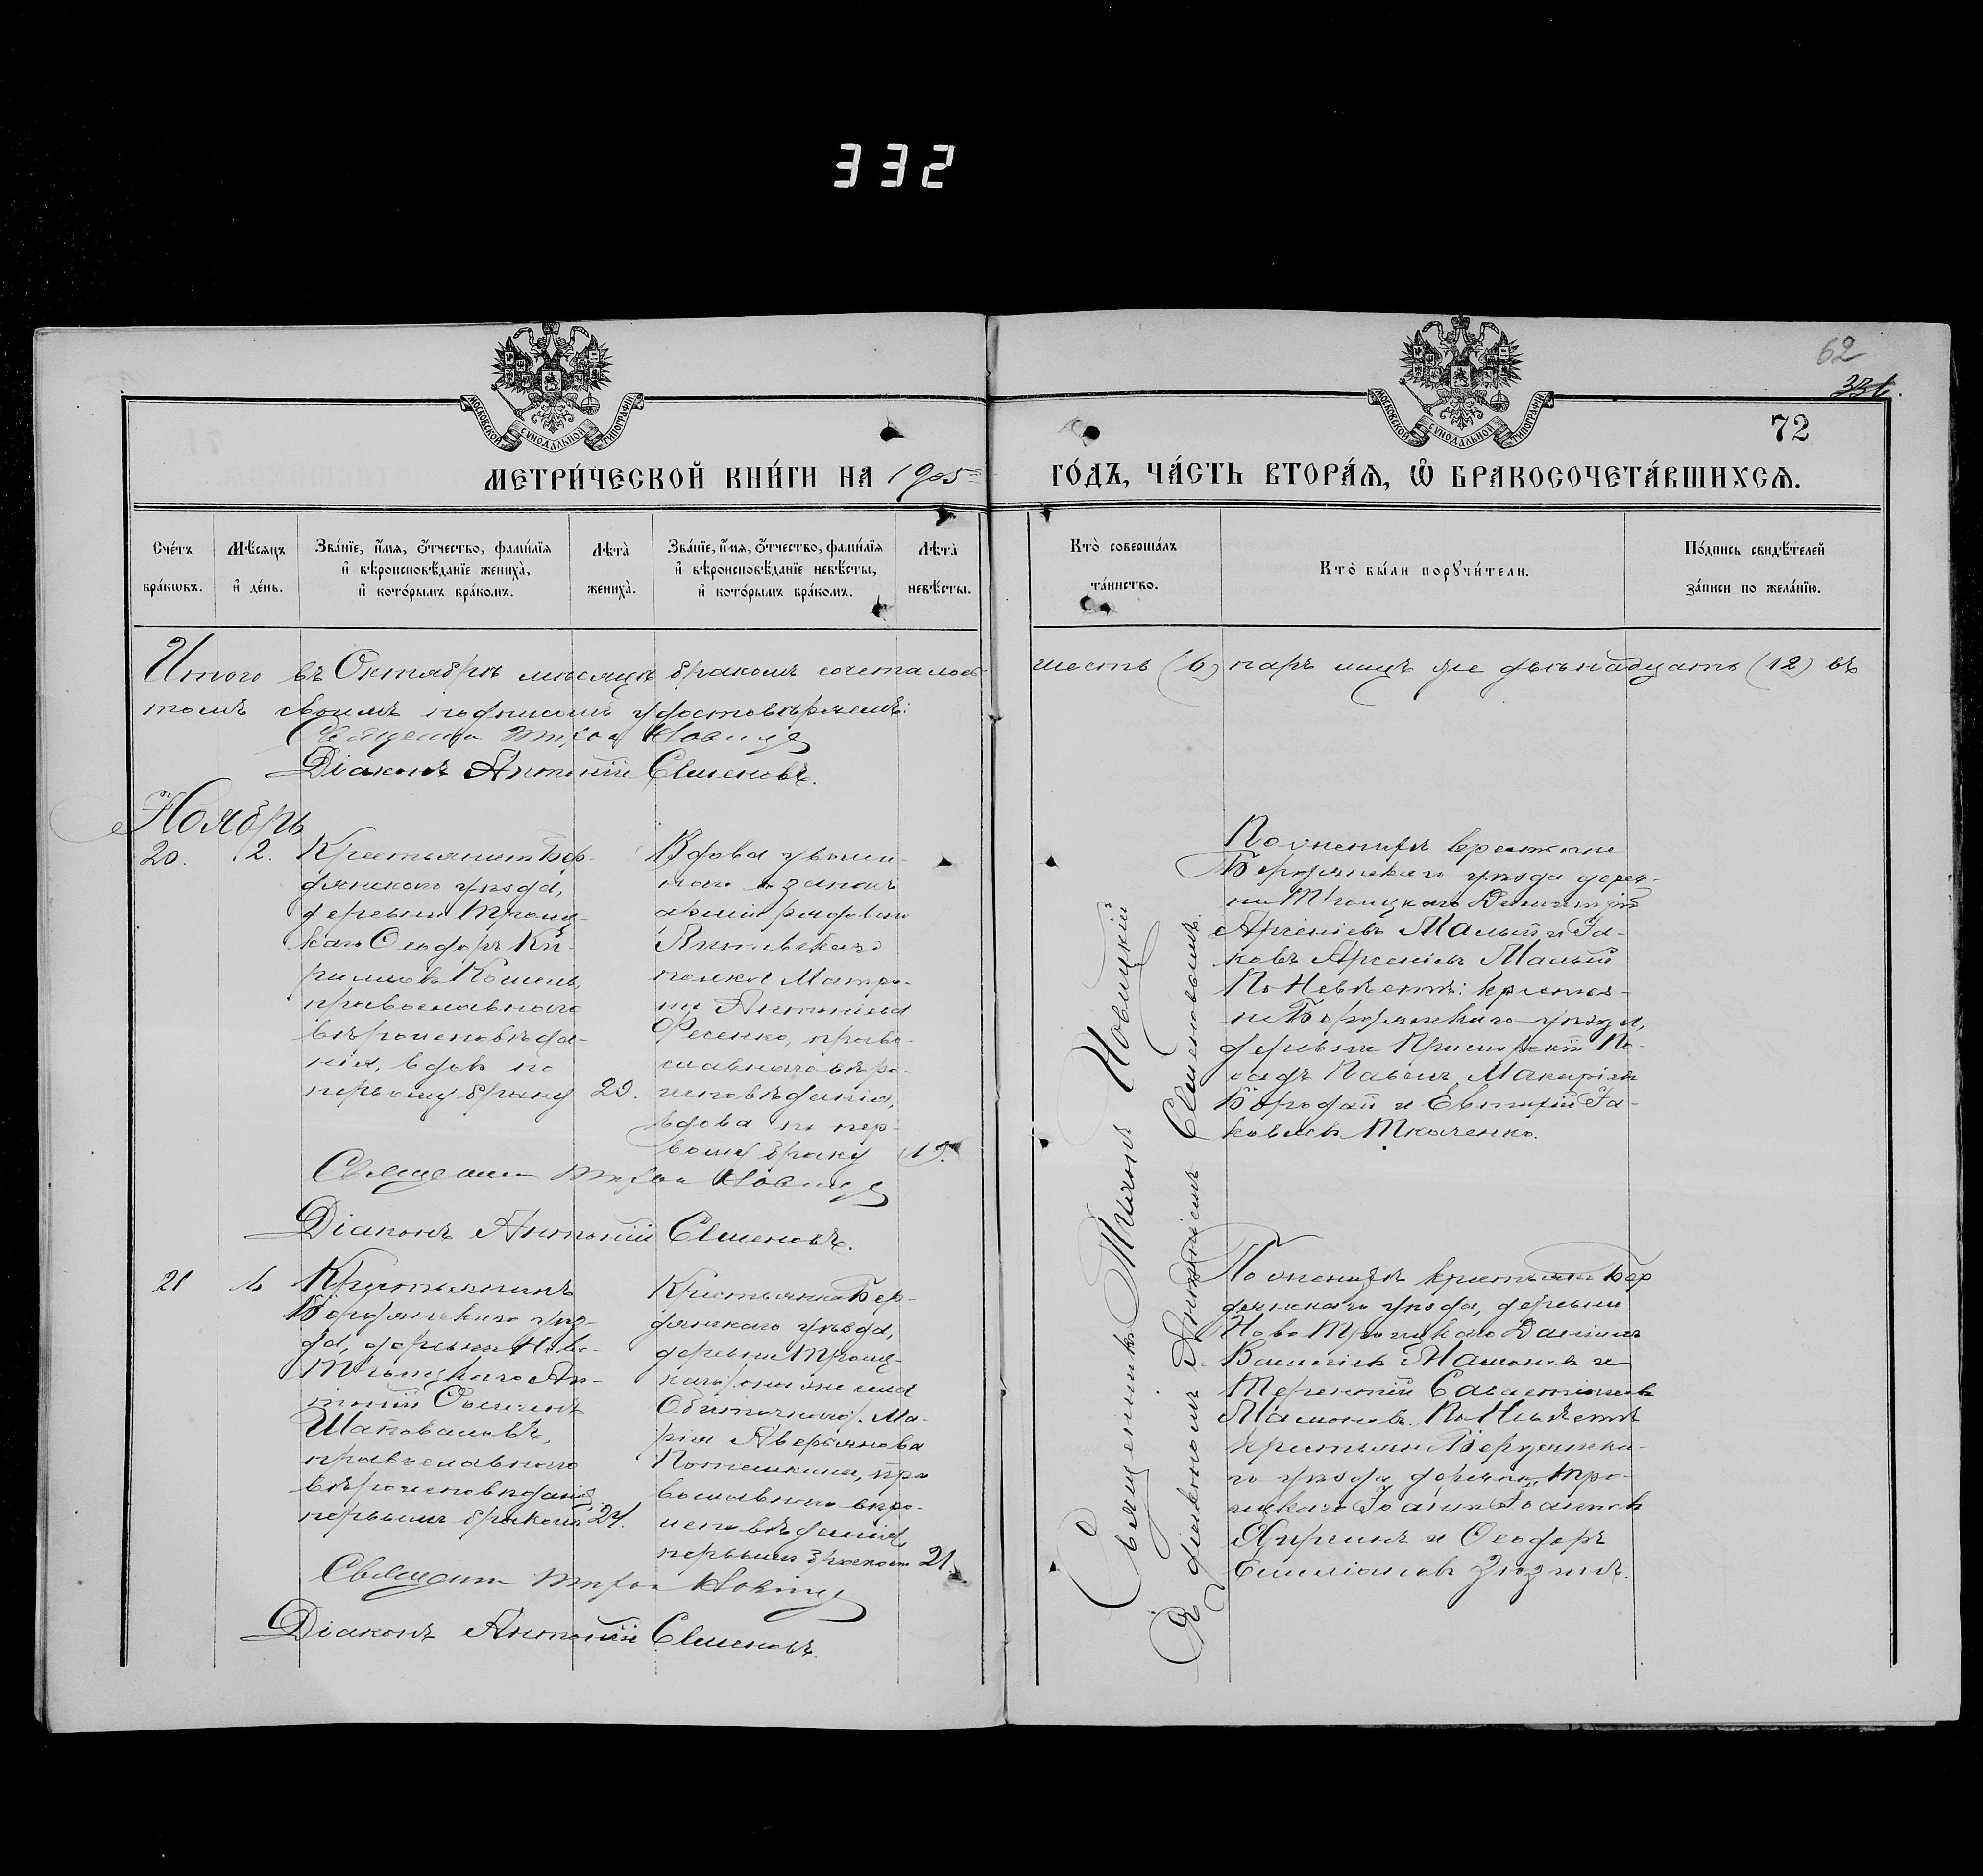 332
62
331.
72
МОСКОВСКОЙ СѴНОДАЛЬНОЙ ТИПОГРАФІИ
МОСКОВСКОЙ СѴНОДАЛЬНОЙ ТИПОГРАФІИ
МЕТРИ́ЧЕСКОЙ КНИ́ГИ НА 1905 ГО́ДЪ, ЧА́СТЬ ВТОРА́Я, Ѡ҆ БРАКОСОЧЕТА́ВШИХСЯ.
Сче́тъ бра́кѡвъ.
Мѣ́сяцъ и҆ де́нь.
Зва́нїе, и҆́мя, ѻ҆́тчество, фами́лїя и҆ вѣроисповѣ́данїе жениха̀, и҆ кото́рымъ бра́комъ.
Лѣ́та̀ жениха̀.
Зва́нїе, и҆́мя, ѻ҆́тчество, фами́лїя и҆ вѣроисповѣ́данїе невѣ́сты, и҆ кото́рымъ бра́комъ.
Лѣ́та̀ невѣ́сты.
Кто̀ соверша́лъ та́инство.
Кто̀ бы́ли порꙋчи́тели.
По́дпись свидѣ́телей за́писи по жела́нїю.
Итого въ Октябрѣ мѣсяцѣ бракомъ сочеталось шесть (6) паръ лицъ же двѣнадцать (12) въ
томъ своимъ подписомъ удостовѣряемъ:
Священни Тихон Новиц
Діаконъ Антоній Семеновъ.
Ноябрь
20.
2.
Крестьянинъ Бер-
дянскаго уѣзда,
деревни Троиц-
каго Ѳеодоръ Ки-
рилловъ Кошель,
православнаго
вѣроисповѣда-
нія, вдовъ по
первому браку
29.
Вдова
армии рядоваго
полка Матро-
на Антонiева
Фесенко, право-
славнаго вѣро-
исповѣданія,
вдова по пер-
вому браку
19.
Священни Тихон Новиц
Діаконъ Антоній Семеновъ.
По женихѣ крестьяне
Бердянскаго уѣзда дерев-
ни Троицкаго Димитрій
Арсеніевъ Малый и Іа-
ковъ Арсеніевъ Малый
По Невѣстѣ: крестья-
не Бердянскаго уѣзда,
деревни По-
садъ Павелъ Макаріевъ
Бородай и Евтихій Іа-
ковлевъ Ткаченко.
21
6
Крестьянинъ
Бердянскаго уѣз-
да, деревни Ново-
Троицкаго Ан-
тоній
Шаповаловъ,
православнаго
вѣроисповѣданія
первымъ бракомъ
24.
Крестьянка Бер-
дянскаго уѣзда,
деревни Троиц-
каго (она же села
Обиточнаго). Ма-
рія Аверьянова
Потемкина, пра
вославнаго вѣро-
исповѣданія
первымъ бракомъ
21.
Священни Тихон Новиц
Діаконъ Антоній Семеновъ.
По женихѣ крестьяне Бер
дянскаго уѣзда, деревни
Ново Троицкаго Даніилъ
Василіевъ Мамоновъ и
Терентій Савастіановъ
Мамоновъ. По Невѣстѣ
крестьяне Бердянска-
го уѣзда деревни Тро-
ицкаго Іоаннъ Іоанновъ
и Ѳеодоръ
Емиліановъ Зюзинъ.
Священникъ Тихонъ Новицкій
съ діакономъ Антоніемъ Семеновымъ.